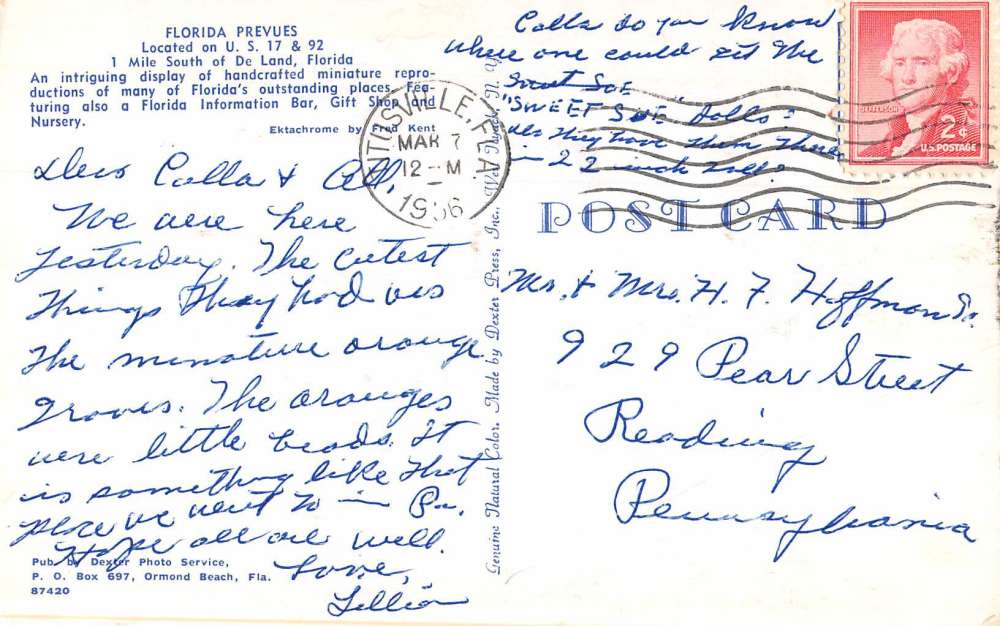 FLORIDA PREVUES
Located on U. S. 17 & 92
1 Mile South of De Land, Florida
An intriguing display of handcrafted miniature repro-
ductions of many of Florida's outstanding places. Fea-
turing also a Florida Information Bar, Gift Shop and
Nursery.
Ektachrome by Fred Kent
Dear Calla & All,
We were here
yesterday. The cutest
things they had was
the minature orange
groves. The oranges
were little beads. It
is something like that
place we went to in Pa.
Hope all are well.
Love,
Lillian
Pub. by Dexter Photo Service,
P. O. Box 697, Ormond Beach, Fla.
87420
Genuine Natural Color. Made by Dexter Press, Inc., West Nyack, N. Y.
Calla do you know
where one could get the
Sweet Sue
"SWEET SUE" dolls?
they have them there
in 22 inch
TITUSVILLE, FLA.
MAR 7
12 - M
1956
JEFFERSON
2¢
U.S. POSTAGE
POST CARD
Mr. & Mrs. H. F. Hoffman Sr.
929 Pear Street
Reading
Pennsylvania